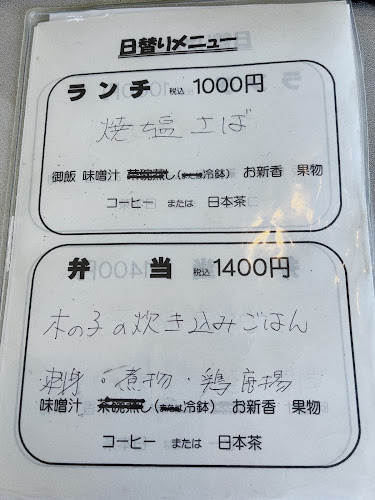 日替りメニュー
ランチ 税込 1000円
焼塩さば
御飯 味噌汁 茶碗蒸し(または冷鉢) お新香 果物
コーヒー または 日本茶
弁当 税込 1400円
木の子の炊き込みごはん
刺身・煮物・鶏唐揚
味噌汁 茶碗蒸し(または冷鉢) お新香 果物
コーヒー または 日本茶